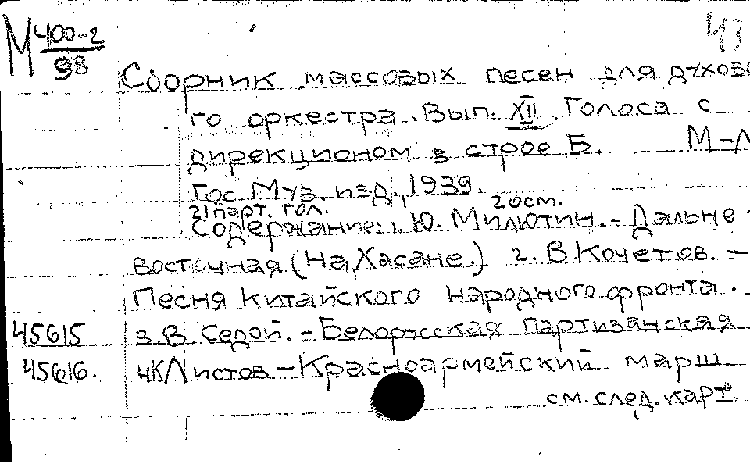 М 400-2
98
43
Сборник массовых песен для духово
го оркестра. Вып. XII. Голоса с
дирекционом в строе Б. М-Л
Гос. Муз. изд., 1939.
21 парт. гол. 2 ост.
Содержание: 1. Ю. Милютин. - Дальне
восточная (На Хасане.) 2. В Кочетов. -
Песня китайского народного фронта. -
45615 3 В. Седой. - Белорусская партизанская
45616. 4К Листов - Красноармейский марш
см. след. карт.